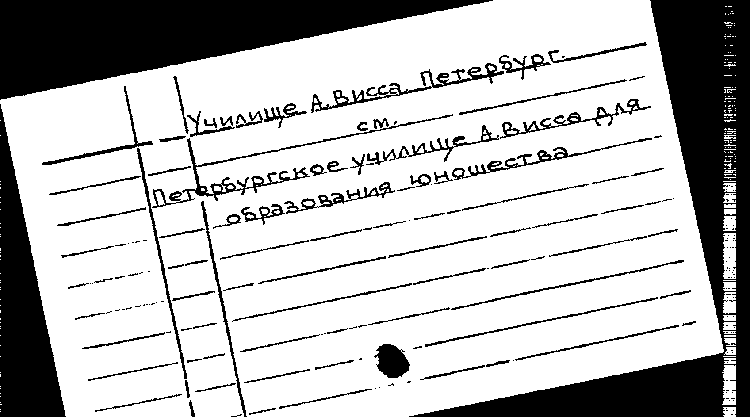 Училище А.Висса. Петербург.
см.
Петербургское училище А.Висса для
образования юношества.